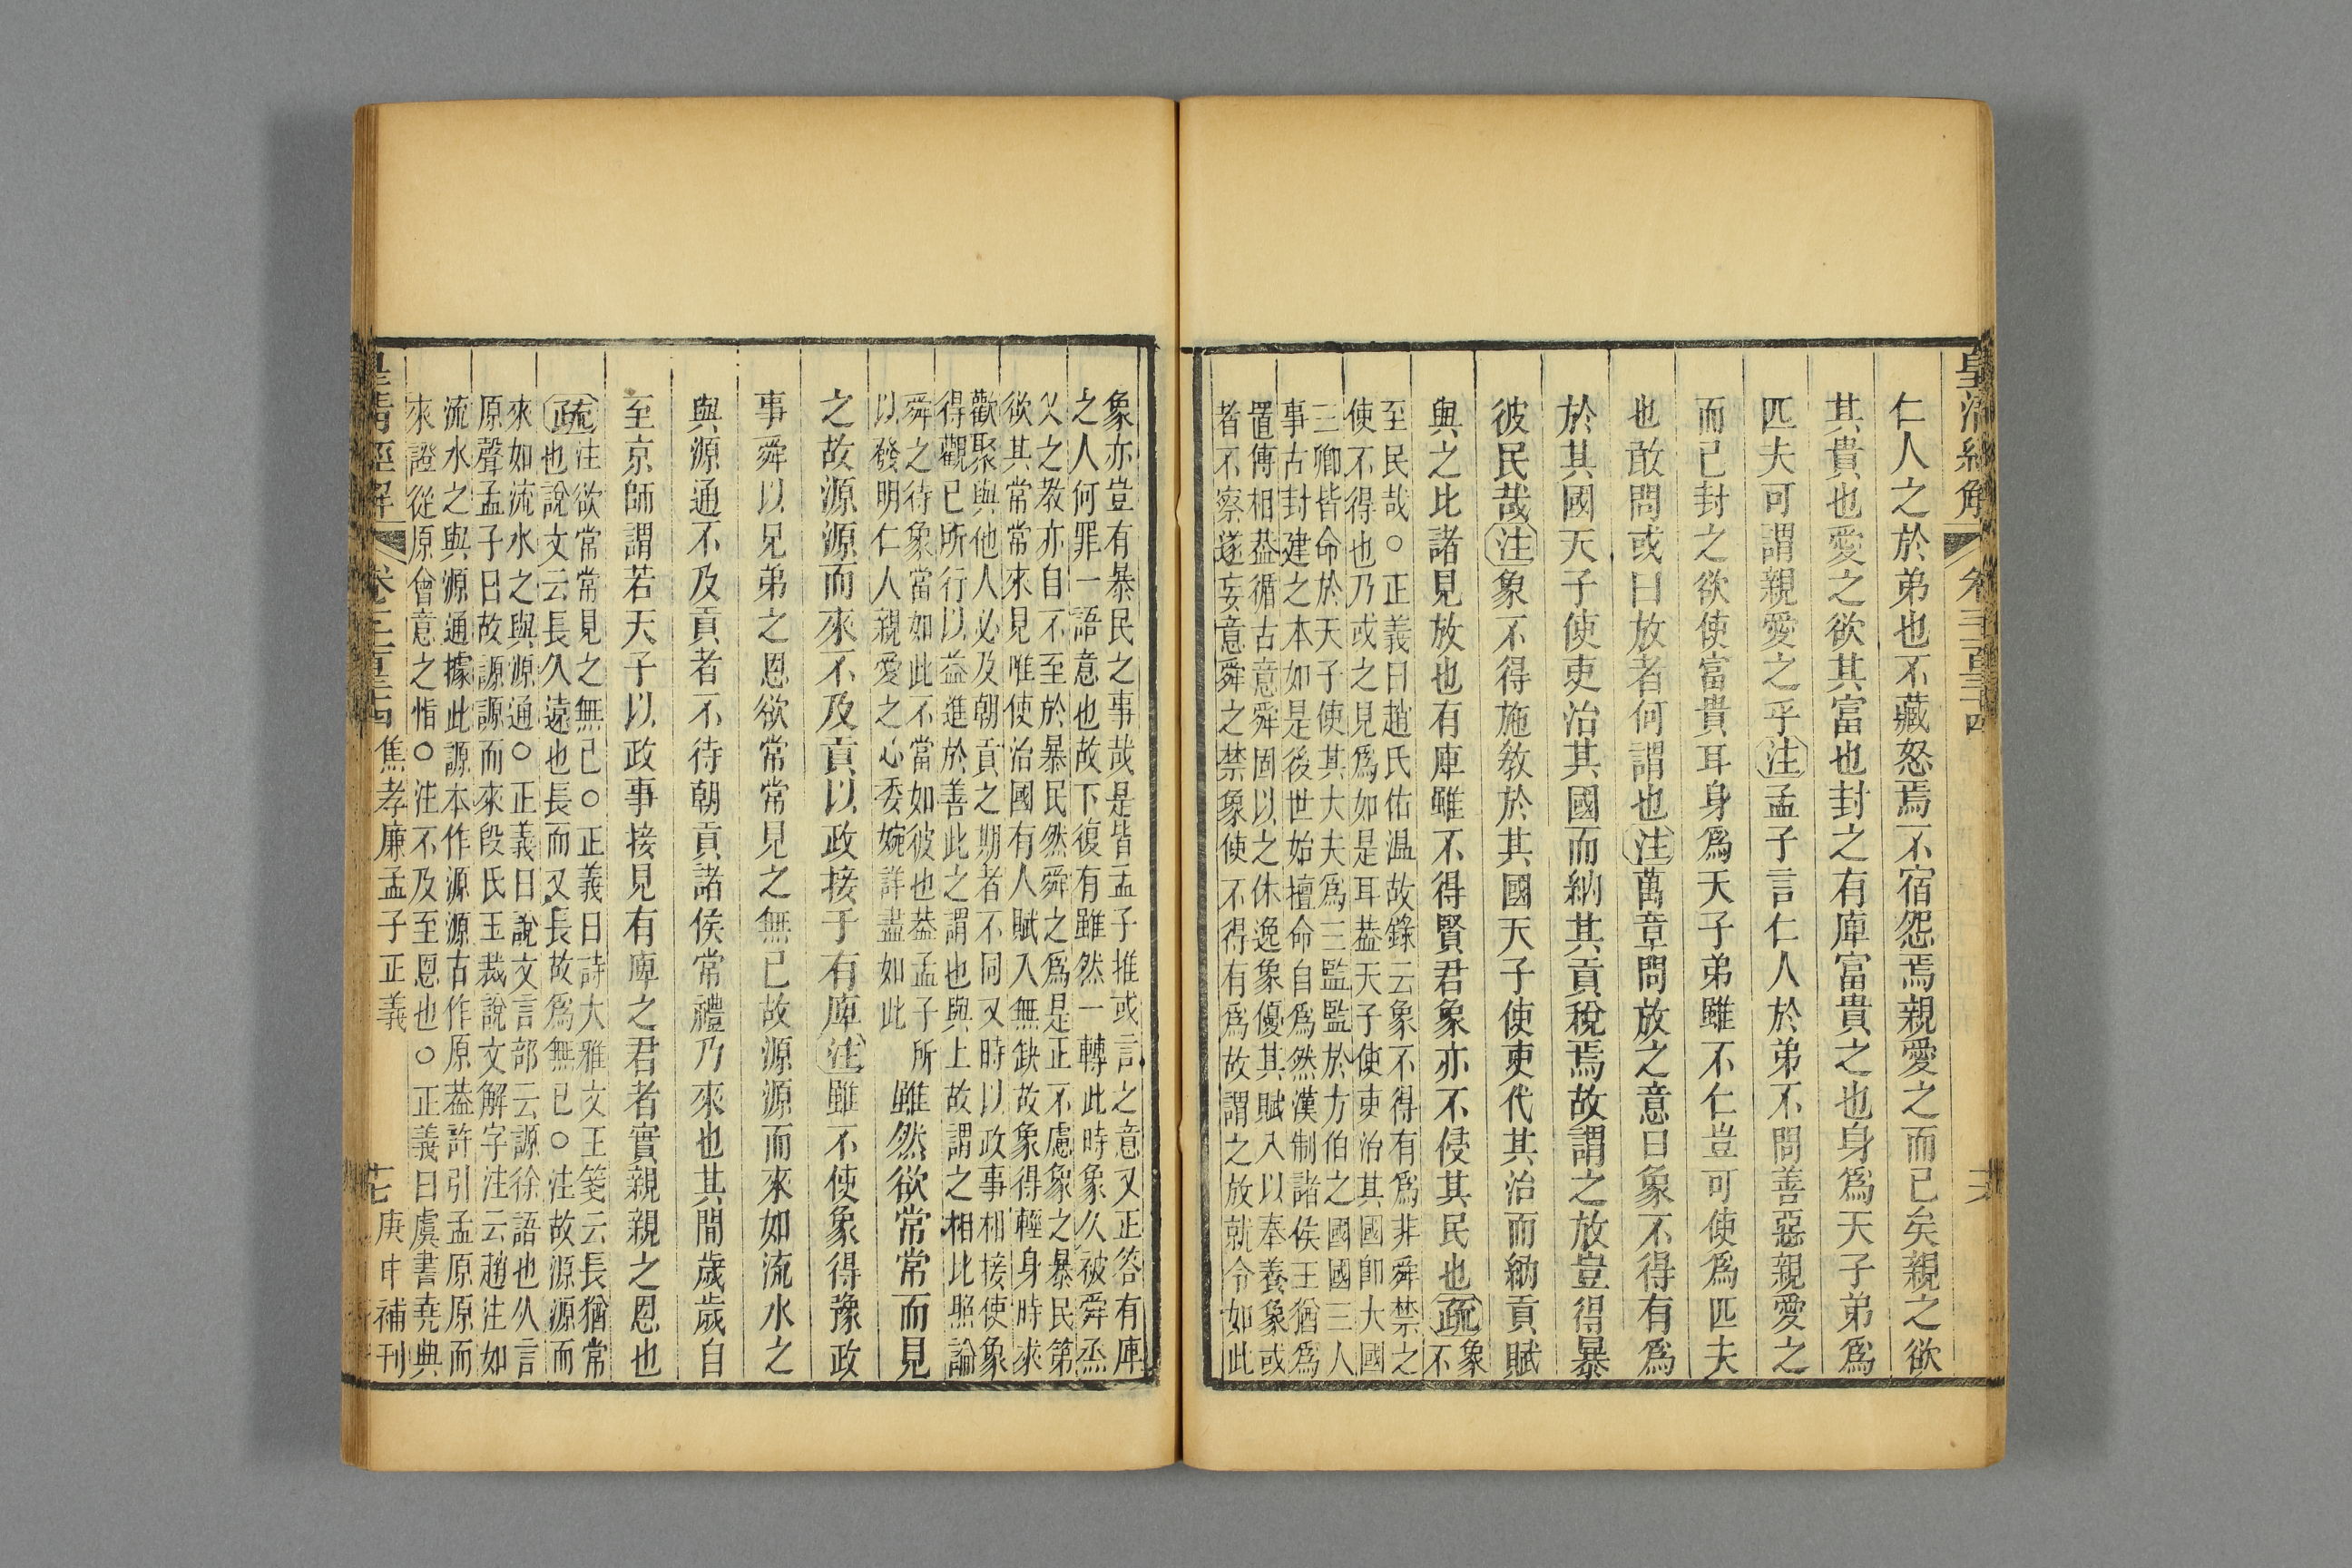 仁人之於弟也不藏怒焉不宿怨焉親愛之而已矣親之欲
其貴也愛之欲其富也封之有庳富貴之也身爲天子弟爲
匹夫可謂親愛之乎注孟子言仁人於弟不問善惡親愛之
而已封之欲使富貴耳身爲天子弟雖不仁豈可使爲匹夫
也敢問或曰放者何謂也注萬章問放之意曰象不得有爲
於其國天子使吏治其國而納其貢稅焉故謂之放豈得暴
彼民哉注象不得施敎於其國天子使吏代其治而納貢賦
與之比諸見放也有庳雖不得賢君象亦不侵其民也疏象
不
至民哉○正義曰趙氏佑温故錄云象不得有爲非舜禁之
使不得也乃或之見爲如是耳葢天子使吏治其國卽大國
三卿皆命於天子使其大夫爲三監監於方伯之國國三人
事古封建之本如是後世始擅命自爲然漢制諸侯王猶爲
置傅相葢循古意舜固以之休逸象優其賦入以奉養象或
者不察遂妄意舜之禁象使不得有爲故謂之放就令如此
象亦豈有暴民之事哉是皆孟子推或言之意又正答有庳
之人何罪一語意也故下復有雖然一轉此時象久被舜烝
乂之敎亦自不至於暴民然舜之爲是正不慮象之暴民第
欲其常常來見唯使治國有人賦入無缺故象得輕身時來
歡聚與他人必及朝貢之期者不同又時以政事相接使象
得觀已所行以益進於善此之謂也與上故謂之相比照論
舜之待象當如此不當如彼也葢孟子所
以發明仁人親愛之心委婉詳盡如此
雖然欲常常而見
之故源源而來不及貢以政接于有庳注雖不使象得豫政
事舜以兄弟之恩欲常常見之無已故源源而來如流水之
與源通不及貢者不待朝貢諸侯常禮乃來也其間歲歲自
至京師謂若天子以政事接見有庳之君者實親親之恩也
疏注欲常常見之無已○正義曰詩大雅文王箋云長猶常
也說文云長久遠也長而又長故爲無已○注故源源而
來如流水之與源通○正義曰說文言部云謜徐語也从言
原聲孟子曰故謜謜而來段氏玉裁說文解字注云趙注如
流水之與源通據此謜本作源源古作原葢許引孟原原而
來證從原會意之恉○注不及至恩也○正義曰虞書堯典
皇清經解
卷三百三十四
焦孝廉孟子正義
七
庚申補刊